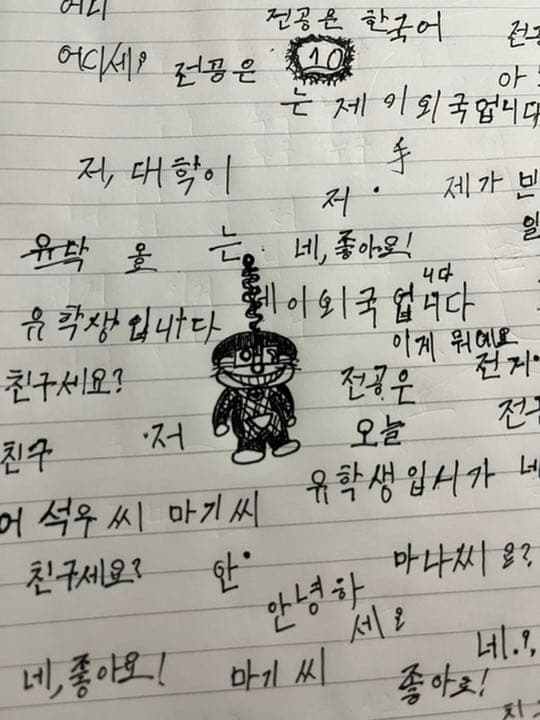 어디
전공은 한국어
어디세?
전공은
10
는 제 이 외국업니다
手
저, 대학이
저
제가 빈
유학
는
네, 좋아요!
니다
이 외국업니다
유학생입니다
이게 뭐예요
친구세요?
전공은
오늘
친구
저
유학생입시가
어 석우 씨 마기 씨
친구세요?
안
마나씨 요?
안녕하
세요
네, 좋아요!
마기 씨
좋아요!